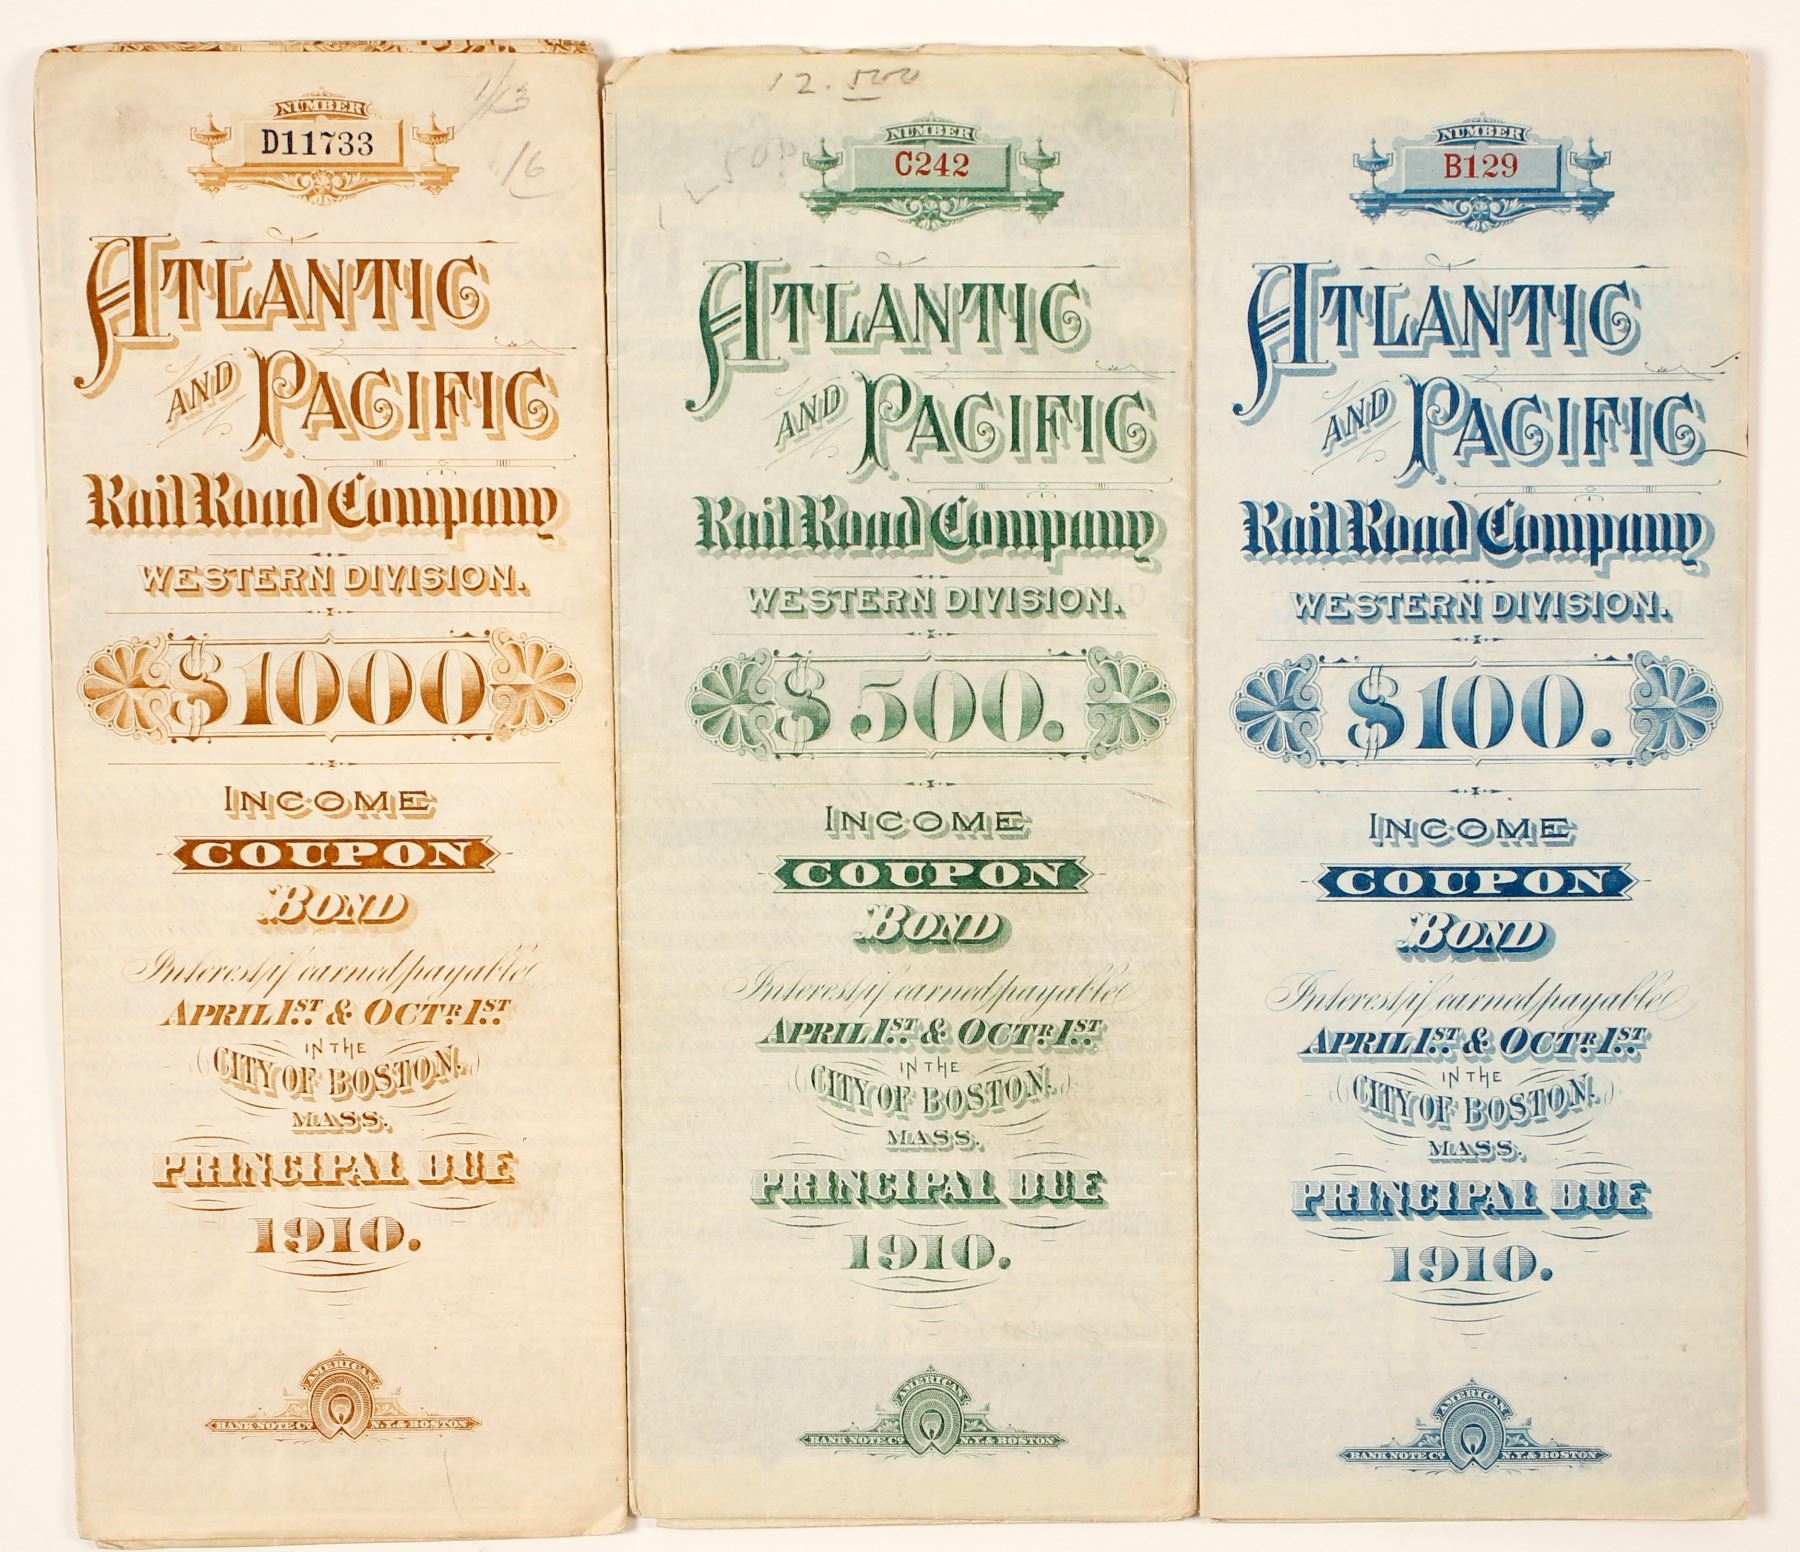 NUMBER
D11733
1/13
16
ATLANTIC
AND PACIFIC
Rail Road Company
WESTERN DIVISION.
$1000
INCOME
COUPON
BOND
Interest if earned payable
APRIL 1ST & OCTR 1ST
IN THE
CITY OF BOSTON.
MASS.
PRINCIPAL DUE
1910.
AMERICAN
BANK NOTE CO N.Y. & BOSTON
12.500
NUMBER
C242
ATLANTIC
AND PACIFIC
Rail Road Company
WESTERN DIVISION.
$500.
INCOME
COUPON
BOND
Interest if earned payable
APRIL 1ST & OCTR 1ST
IN THE
CITY OF BOSTON.
MASS.
PRINCIPAL DUE
1910.
AMERICAN
BANK NOTE CO N.Y. & BOSTON
NUMBER
B129
ATLANTIC
AND PACIFIC
Rail Road Company
WESTERN DIVISION.
$100.
INCOME
COUPON
BOND
Interest if earned payable
APRIL 1ST & OCTR 1ST
IN THE
CITY OF BOSTON.
MASS.
PRINCIPAL DUE
1910.
AMERICAN
BANK NOTE CO N.Y. & BOSTON